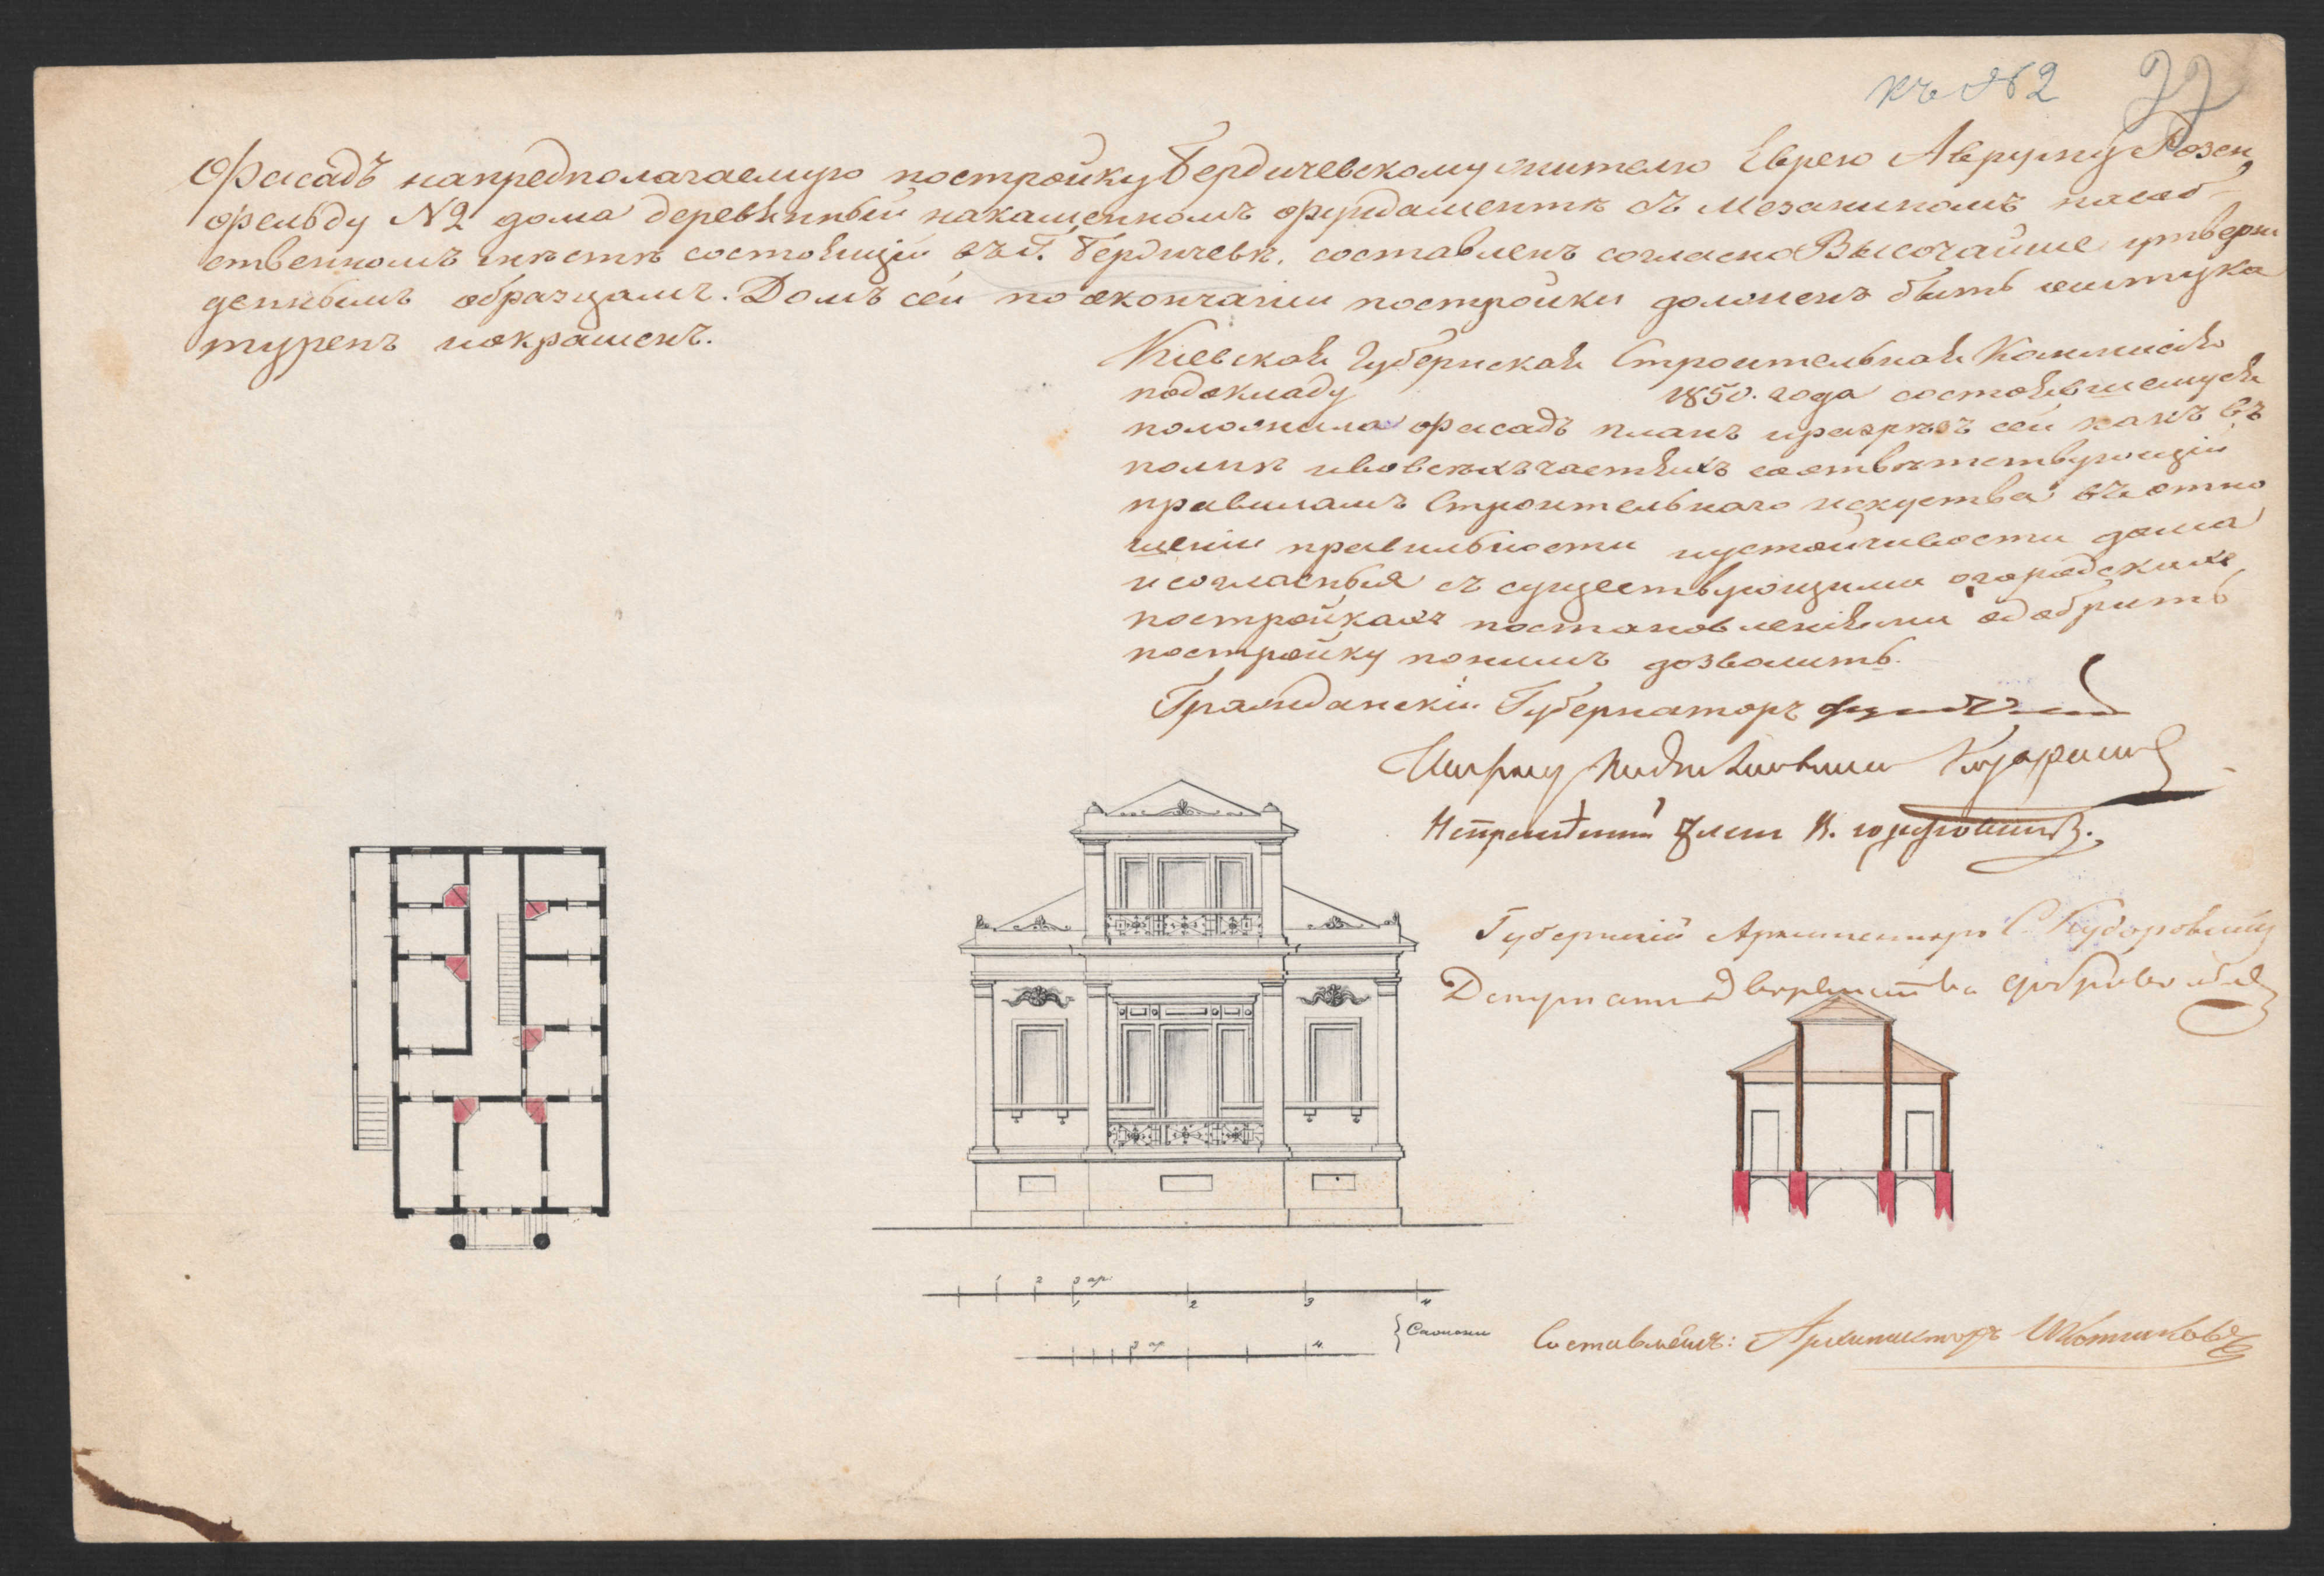 къ №2 27
Фасадъ напредполагаемую постройку Бердичевскому жителю Еврею Аврумку Розен
фельду №2 дома деревянный накаменномъ фундаментѣ съ Мезаниномъ насоб
ственномъ мѣстѣ состоящій въ г. Бердичевѣ. составленъ согласно Высочайше утверж
деннымъ образцамъ. Домъ сей по окончаніи постройки долженъ быть оштука
туренъ покрашенъ.
Кіевская Губернская Строительная Коммисія
подокладу 1850. года состоявшемуся
положила фасадъ планъ иразрѣзъ сей какъ въ
полнѣ ивовсѣхъ частяхъ соотвѣтствующій
правиламъ Строительнаго искуства въ отно
шеніи правильности иустойчивости дома
исогласныя съ существующими огородскихъ
постройкахъ постановленіями одобрить
постройку понимъ дозволить.
Гражданскій Губернаторъ
Непремѣнный Членъ К.
Губернскій Архитекторъ
Депутатъ Дворянства
1 2 3 ар
1 2 3 4
3 ар 4
Сажени
Составлялъ: Архитекторъ